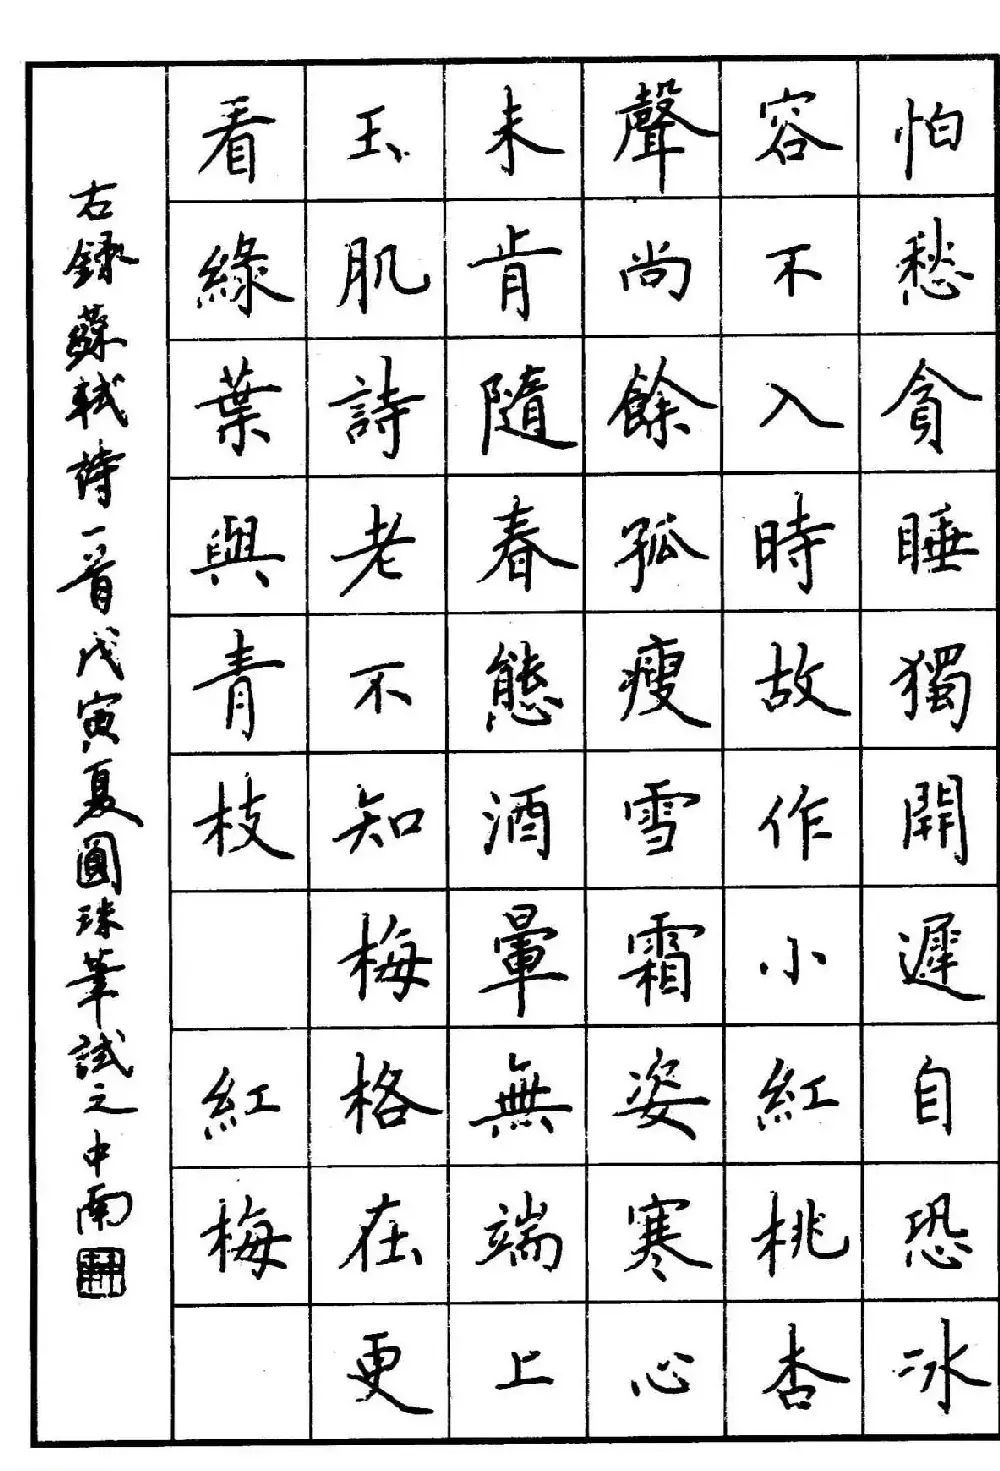 怕愁貪睡獨開遲自恐冰
容不入時故作小紅桃杏
聲尚餘孤瘦雪霜姿寒心
未肯隨春態酒暈無端上
玉肌詩老不知梅格在更
看綠葉與青枝 紅梅
右錄蘇軾詩一首戊寅夏圓珠筆試之中南